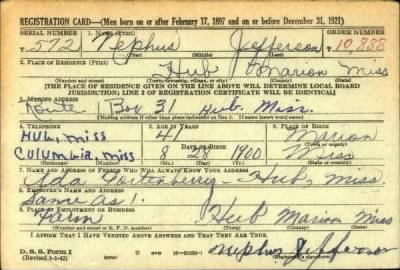 REGISTRATION CARD—(Men born on or after February 17, 1897 and on or before December 31, 1921)
SERIAL NUMBER 1. NAME (Print) ORDER NUMBER
572 Nephus Jefferson 10,888
(First) (Middle) (Last)
2. PLACE OF RESIDENCE (Print)
Hub Marion Miss
(Number and street) (Town, township, village, or city) (County) (State)
[THE PLACE OF RESIDENCE GIVEN ON THE LINE ABOVE WILL DETERMINE LOCAL BOARD
JURISDICTION; LINE 2 OF REGISTRATION CERTIFICATE WILL BE IDENTICAL]
3. MAILING ADDRESS
Route 1 Box 31 Hub, Miss.
[Mailing address if other than place indicated on line 2. If same insert word same]
4. TELEPHONE 5. AGE IN YEARS 6. PLACE OF BIRTH
HUb, miss 41 Marion
DATE OF BIRTH
Culumbia, miss 8 28 1900 Miss
7. NAME AND ADDRESS OF PERSON WHO WILL ALWAYS KNOW YOUR ADDRESS
Ada Fortenberry - Hub, Miss
8. EMPLOYER'S NAME AND ADDRESS
Same as 1.
9. PLACE OF EMPLOYMENT OR BUSINESS
Farm Hub Marion Miss
(Number and street or R. F. D. number) (Town) (County) (State)
I AFFIRM THAT I HAVE VERIFIED ABOVE ANSWERS AND THAT THEY ARE TRUE.
D. S. S. Form 1
Nephus Jefferson